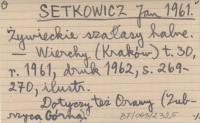 SETKOWICZ Jan 1961.
Żywieckie szałasy halne.
Wierchy (Kraków) t. 30,
r. 1961, druk 1962, s. 269-
270, ilustr.
Dotyczy też Orawy (Zub-
rzyca Górna)